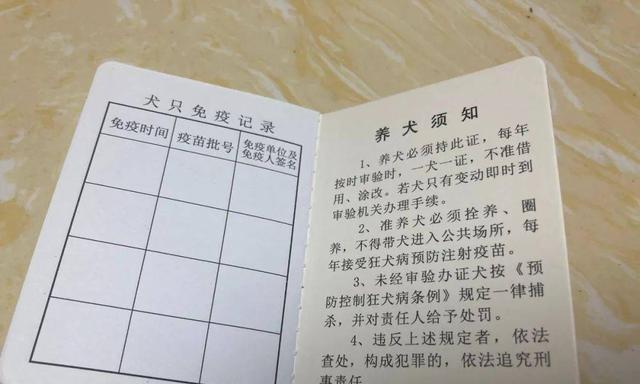 犬只免疫记录
免疫时间 疫苗批号 免疫单位及
免疫人签名
养犬须知
1、养犬必须持此证，每年
按时审验时，一犬一证，不准借
用、涂改。若犬只有变动即时到
审验机关办理手续。
2、准养犬必须拴养、圈
养，不得带犬进入公共场所，每
年接受狂犬病预防注射疫苗。
3、未经审验办证犬按《预
防控制狂犬病条例》规定一律捕
杀，并对责任人给予处罚。
4、违反上述规定者，依法
查处，构成犯罪的，依法追究刑
事责任。